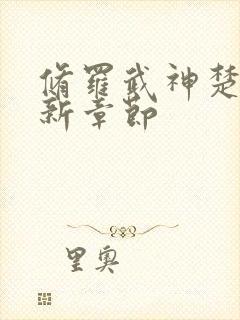 脩羅武神楚
新章節
里奧